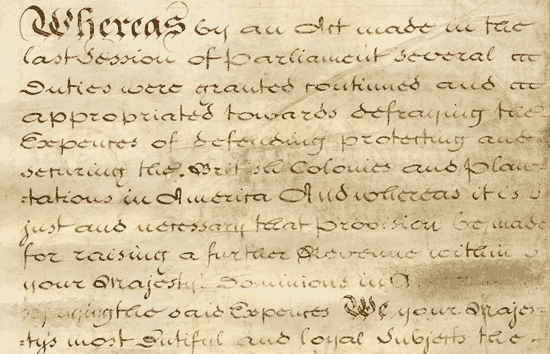 Whereas by an Act made in the
last Session of Parliament several
Duties were granted continued and
appropriated towards defraying the
Expences of defending protecting and
securing the British Colonies and Plan
:tations in America And whereas it is
just and necessary that provision be made
for raising a further Revenue within
your Majesty's Dominions in
the said Expences We your Majes:
:tys most Dutiful and loyal Subjects the